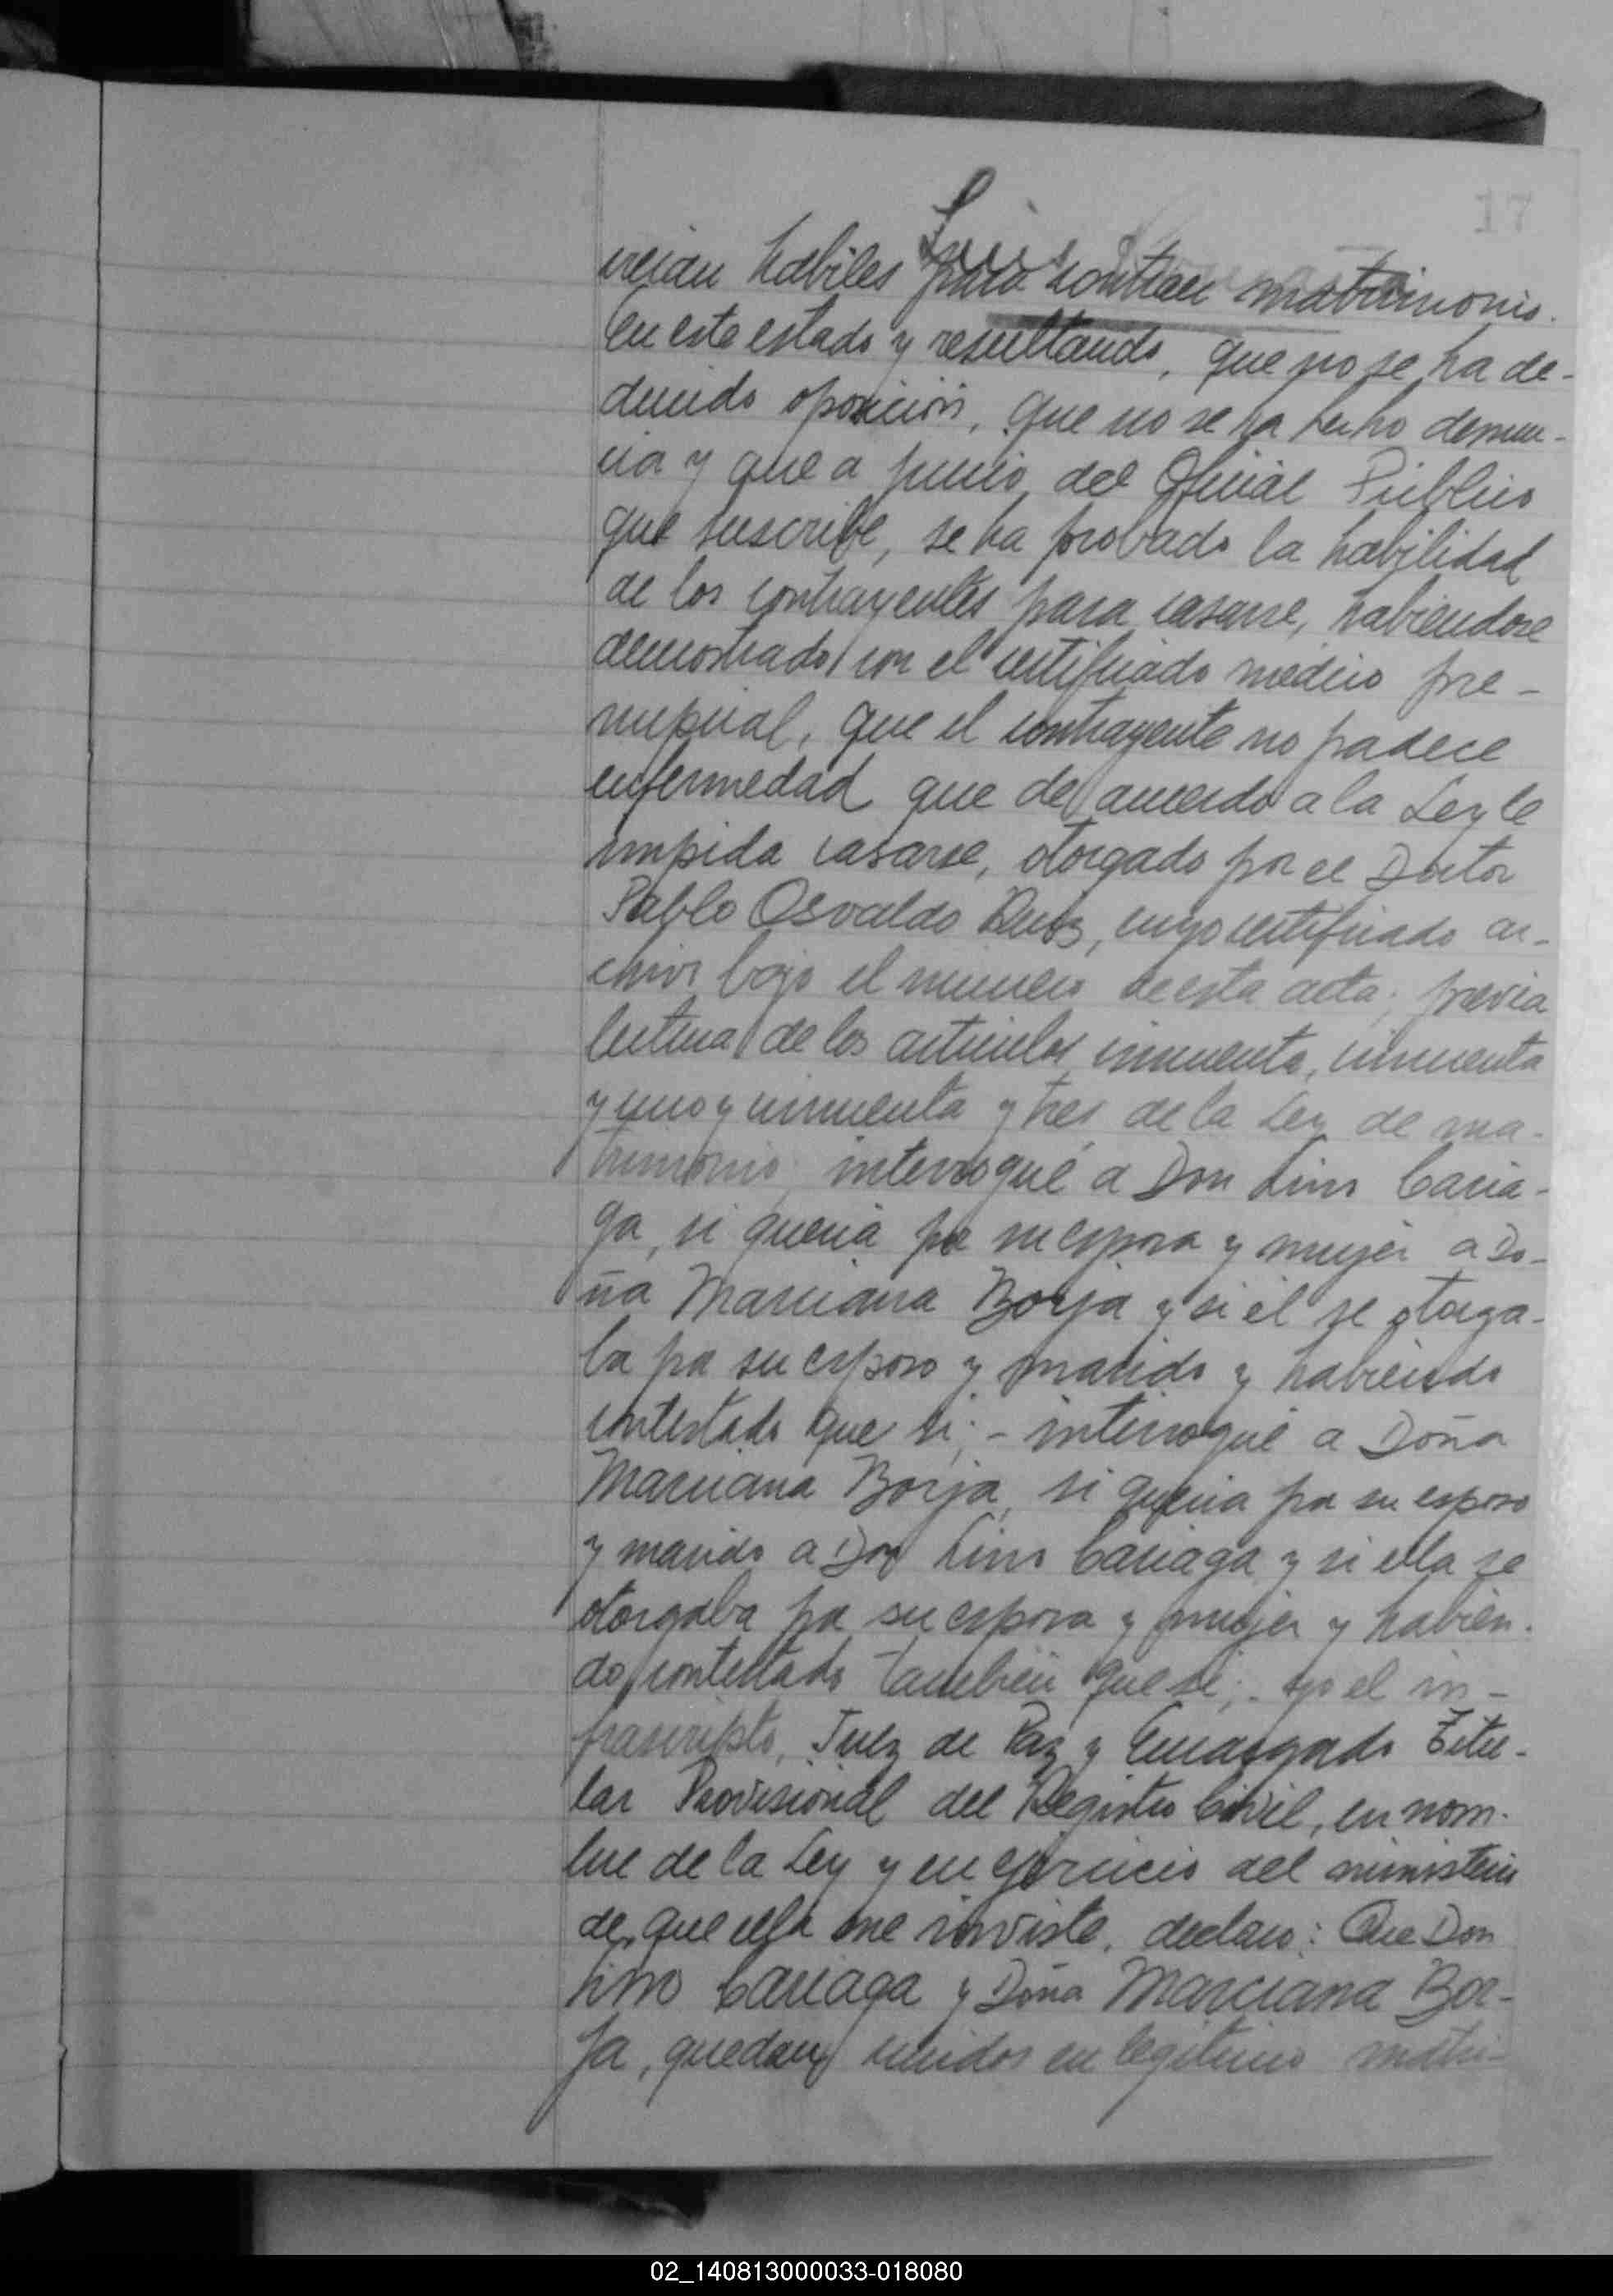 17
Luis
creian habiles para contraer matrimonio.
En este estado y resultando, que no se ha de-
ducido oposición, que no se ha hecho denun-
cia y que a juicio del Oficial Público
que suscribe, se ha probado la habilidad
de los contrayentes para casarse, habiendose
demostrado con el certificado medico pre-
nupcial, que el contrayente no padece
enfermedad que de acuerdo a la Ley le
impida casarse, otorgado por el Doctor
Pablo Osvaldo Ruiz, cuyo certificado ar-
chivo bajo el numero de esta acta; previa
lectura de los articulos cincuenta, cincuenta
y uno y cincuenta y tres de la Ley de ma-
trimonio, interrogué a Don Lino Caria-
ga, si queria por su esposa y mujer a Do-
ña Marciana Borja y si él se otorga-
ba por su esposo y marido y habiendo
contestado que si; - interrogué a Doña
Marciana Borja, si queria por su esposo
y marido a Don Lino Cariaga y si ella se
otorgaba por su esposa y mujer y habien-
do contestado también que si; - yo el in-
frascripto, Juez de Paz y Encargado Titu-
lar Provisional del Registro Civil, en nom-
bre de la Ley y en ejercicio del ministerio
de que ella me inviste, declaro: Que Don
Lino Cariaga y Doña Marciana Bor-
ja, quedan unidos en legitimo matri-
02_140813000033-018080